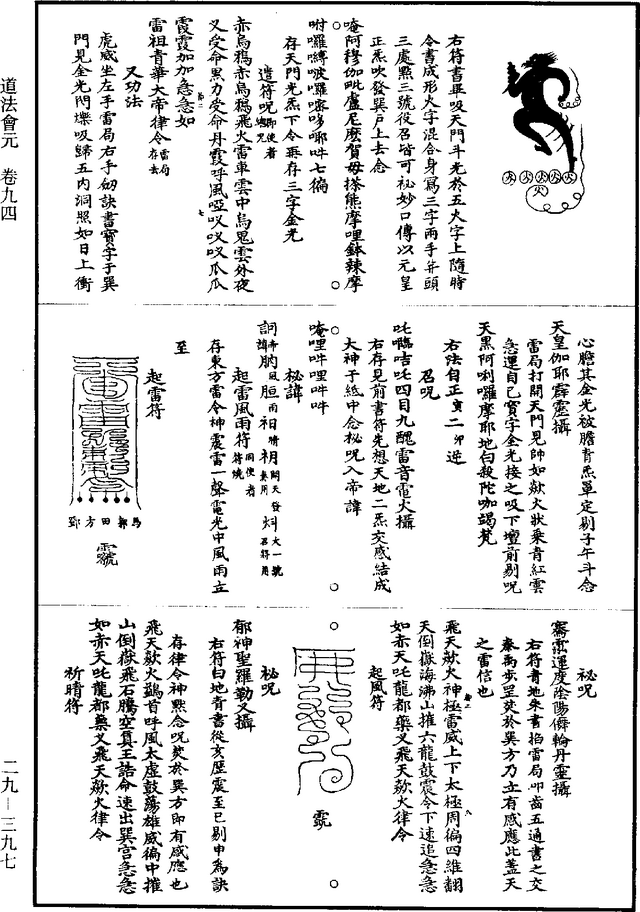 道法會元 卷九四
右符書畢吸天門斗光於五火字上隨時
令書成形火字混合身寫三字兩手并頭
三處點三號役召皆可祕妙口傳以元皇
正炁吹發巽戶上去念
唵阿穆伽毗盧尼麽賀母捺熊摩哩鉢辣摩
咐囉嚩啵囉嚓哆耶吽七徧
存天門光炁下令再存三字金光
造符呪即使者總呪
赤烏鴉赤烏鴉飛火雷車雲中烏鬼雲外夜
叉受命黑力受命丹霞呼風啞㕚㕚㕚瓜瓜
霞霞加加急急如
雷祖青華大帝律令存雷局去
又功法
虎威坐左手雷局右手劒訣書寶字于巽
門見金光閃爍吸歸五內洞照如日上衝
心膽其金光被膽青炁單定剔子午斗念
天皇伽耶霹靂攝
雷局打開天門見帥如歘火狀乘青紅雲
急運自己寶字金光接之吸下壇前剔呪
天黑阿唎囉摩耶地勾殺陀咖竭梵
右法自正寅二卯逆
召呪
吒㘕咭吒四目九醜雷音電火攝
右存見前書符先想天地二炁交感結成
大神于紙中念祕呪入帝諱
唵哩吽哩吽吽
祕諱
起雷風雨符同使者符燒
存東方雷令神震雷一聲電光中風雨立
至
起雷符
馬郭田方鄧
祕呪
鶱雷運度陰陽儕輪丹靈攝
右符青地朱書掐雷局叩齒五通書之交
泰禹步罡焚於巽方乃立有感應此蓋天
之雷信也
飛天歘火神極雷威上下太極周徧四維翻
天倒嶽海沸山摧六龍鼓震令下速追急急
如赤天吒龍都藥叉飛天歘火律令
起風符
祕呪
郁神聖羅勒叉攝
右符白地青書從亥歷震至巳剔申為訣
存律令神㸃念呪焚於巽方即有感應也
飛天歘火鷂首呼風太虛鼓蕩雄威徧中摧
山倒嶽飛石騰空負王誥命速出巽宮急急
如赤天吒龍都藥叉飛天歘火律令
祈晴符
二九—三九七